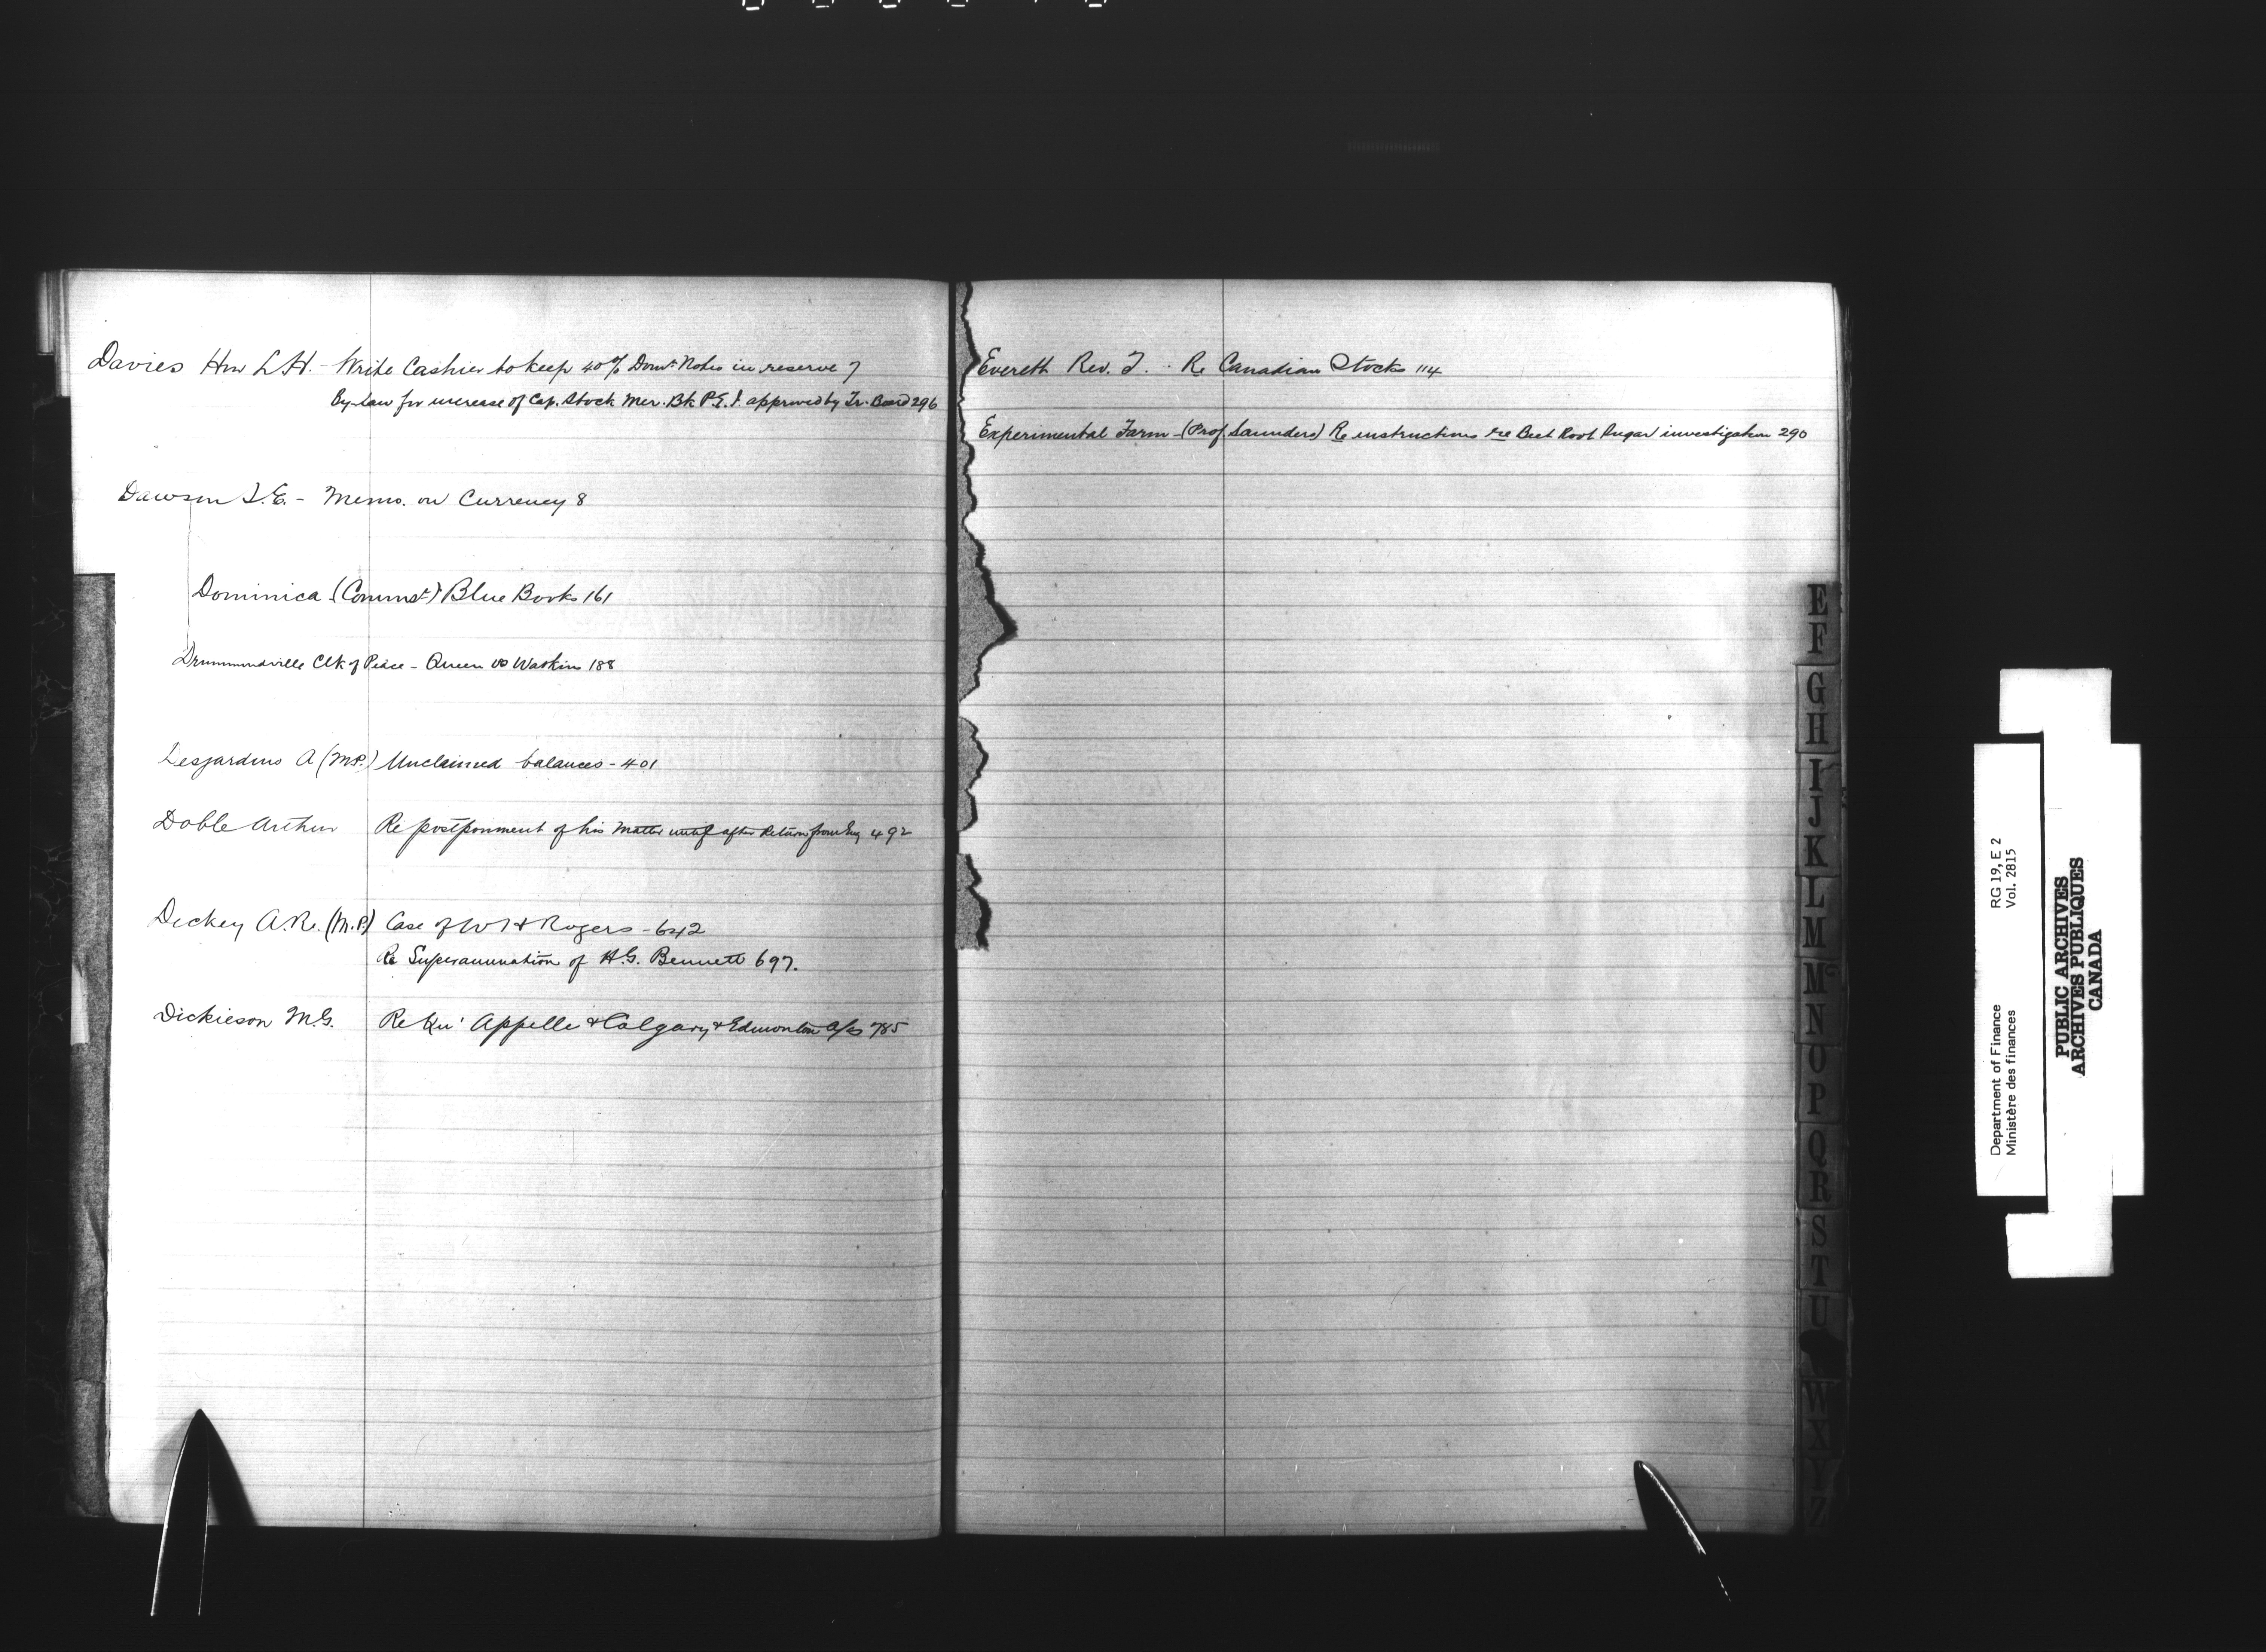 Davies Hon L.H. - Write Cashier to keep 40% Domn Notes in reserve 7
By-law for increase of Cap. Stock Mer. Bk P.E.I. approved by Tr. Board 296
Dawson S.E. - Memo. on Currency 8
Dominica (Commr) Blue Books 161
Drummondville Clk of Peace - Queen vs Watkins 188
Desjardins A (M.P.) Unclaimed balances - 401
Doble Arthur Re postponment of his Matter until after Return from Eng 492
Dickey A.R. (M.P) Case of W H Rogers - 642
Re Superannuation of H.G. Bennett 697.
Dickieson M.G. Re Qu'Appelle & Calgary & Edmonton a/cs 785
Everett Rev. T. - Re Canadian Stocks 114
Experimental Farm - (Prof. Saunders) Re instructions re Beet Root Sugar investigation 290
E
F
G
H
I
J
K
L
M
Mc
N
O
P
Q
R
S
T
U
W
X
Y
Z
Department of Finance RG 19, E 2
Ministère des finances Vol. 2815
PUBLIC ARCHIVES
ARCHIVES PUBLIQUES
CANADA